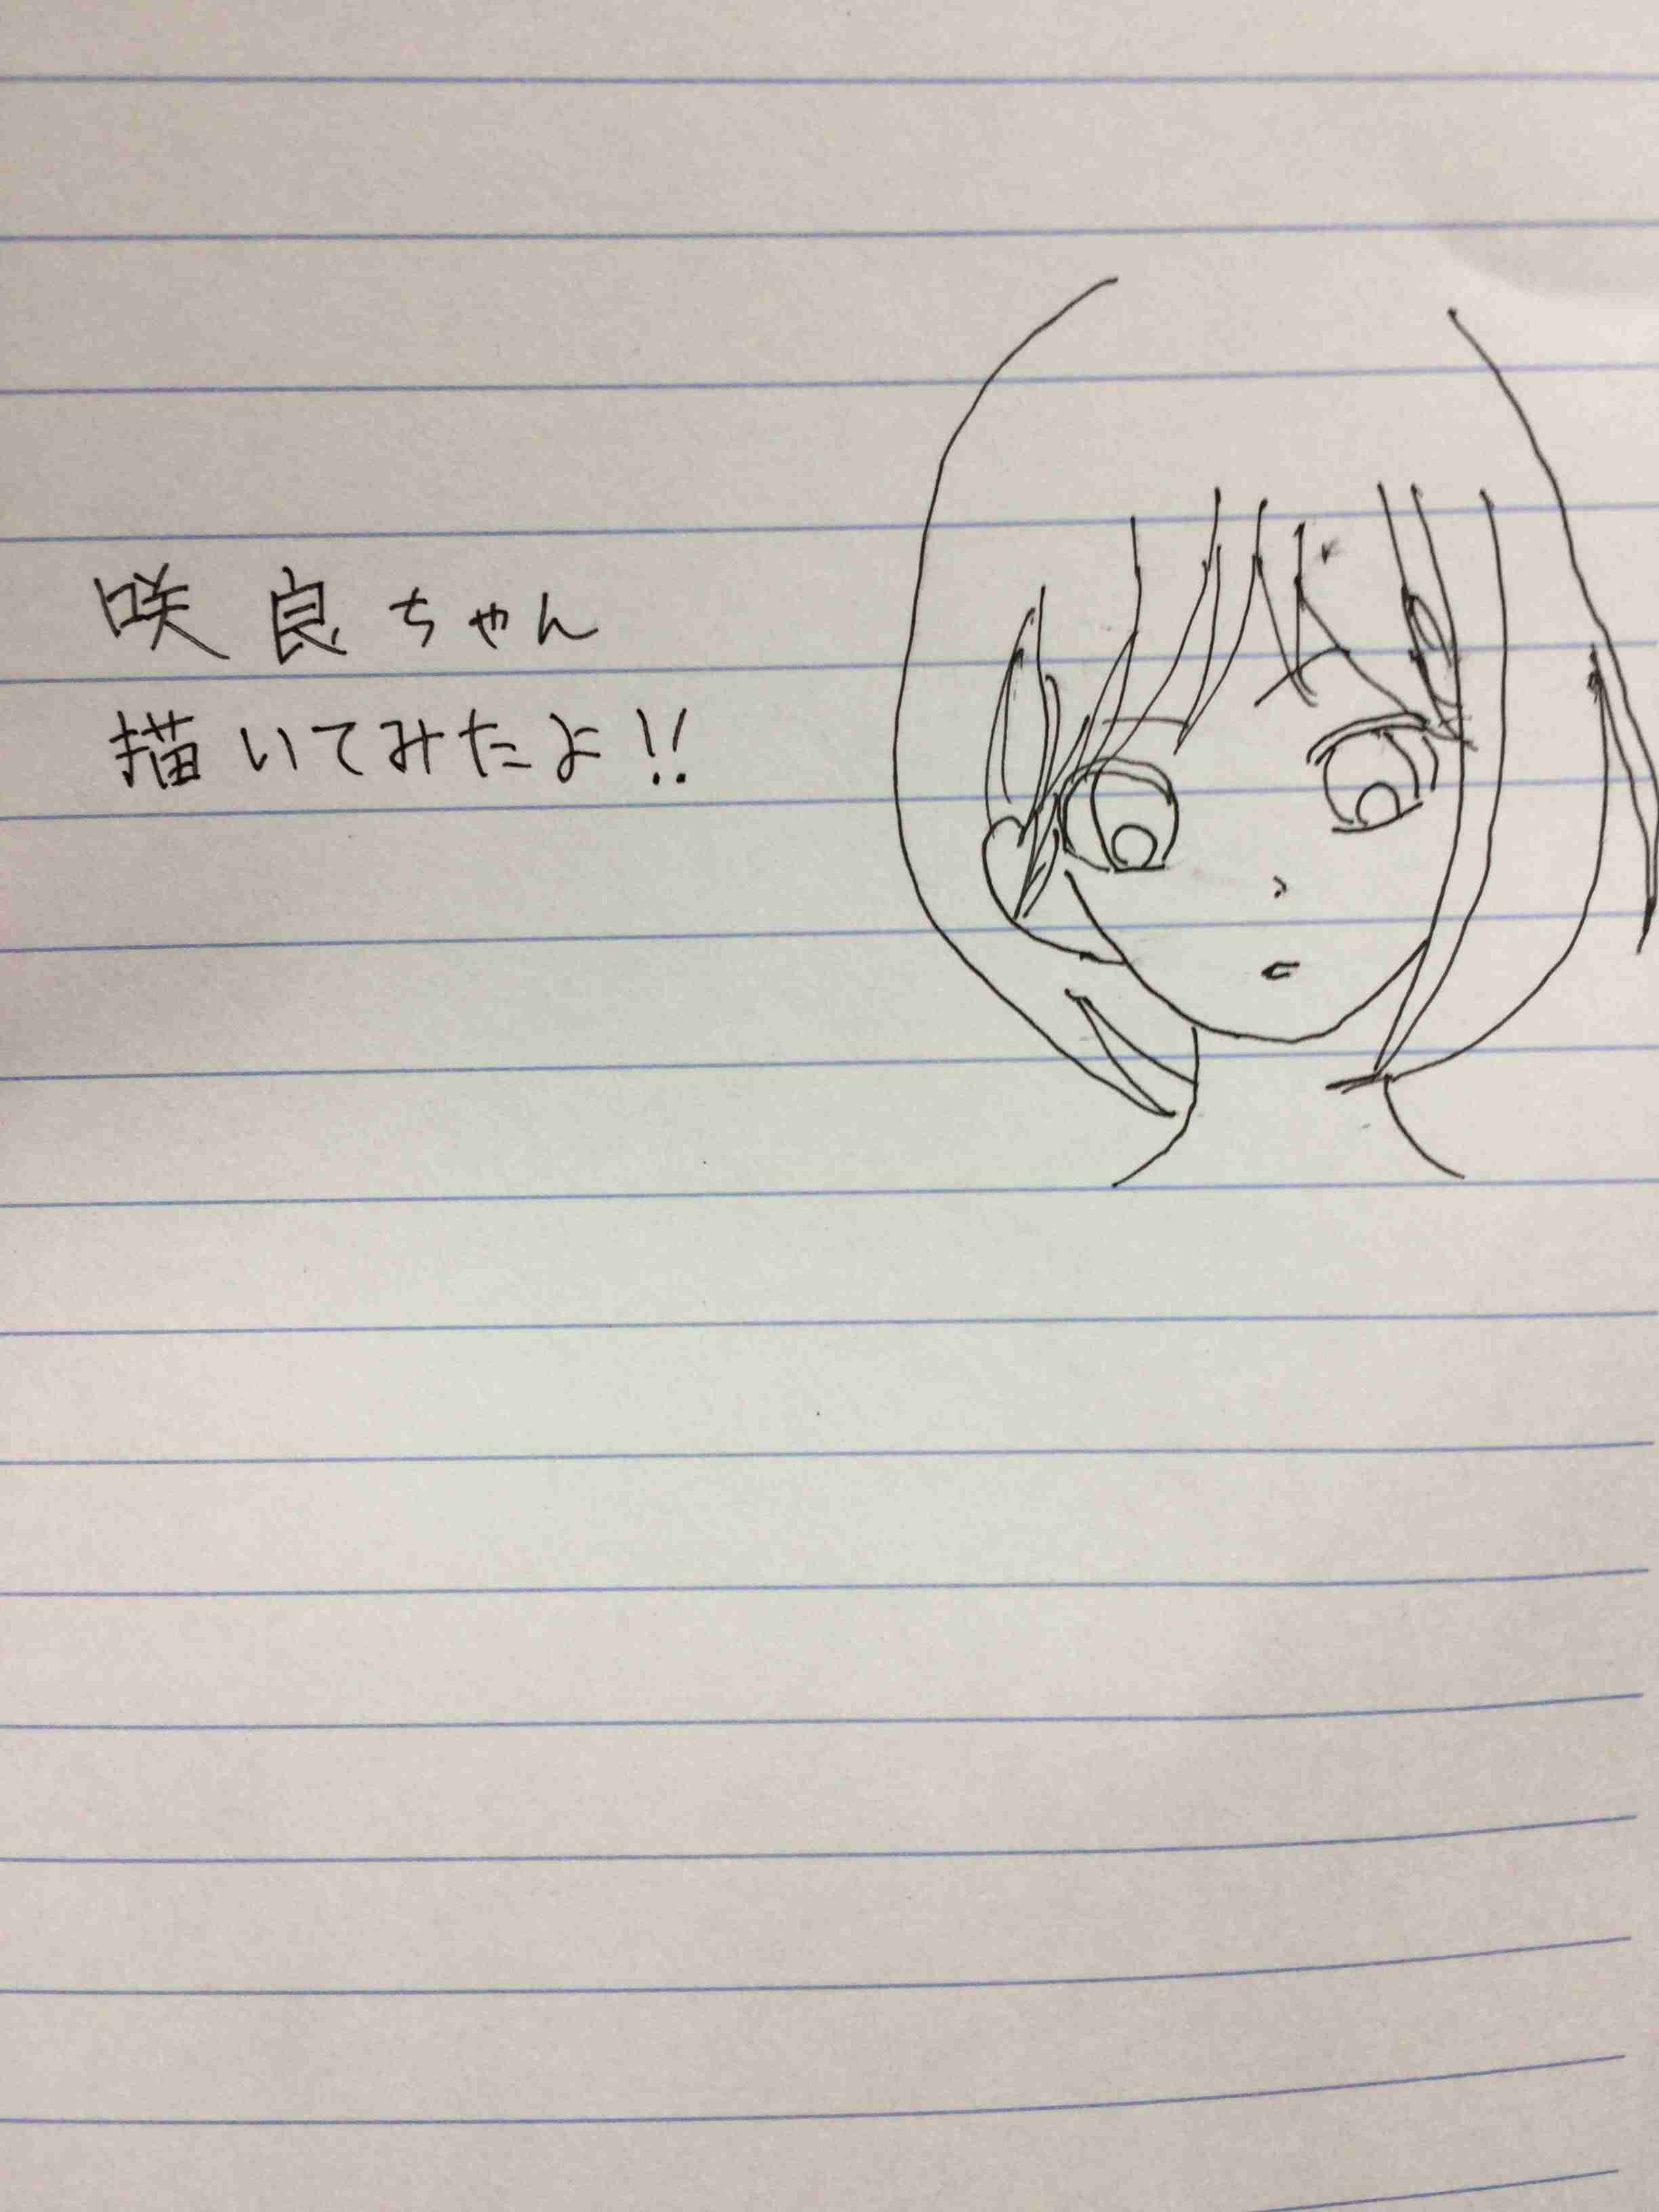 咲良ちゃん
描いてみたよ!!